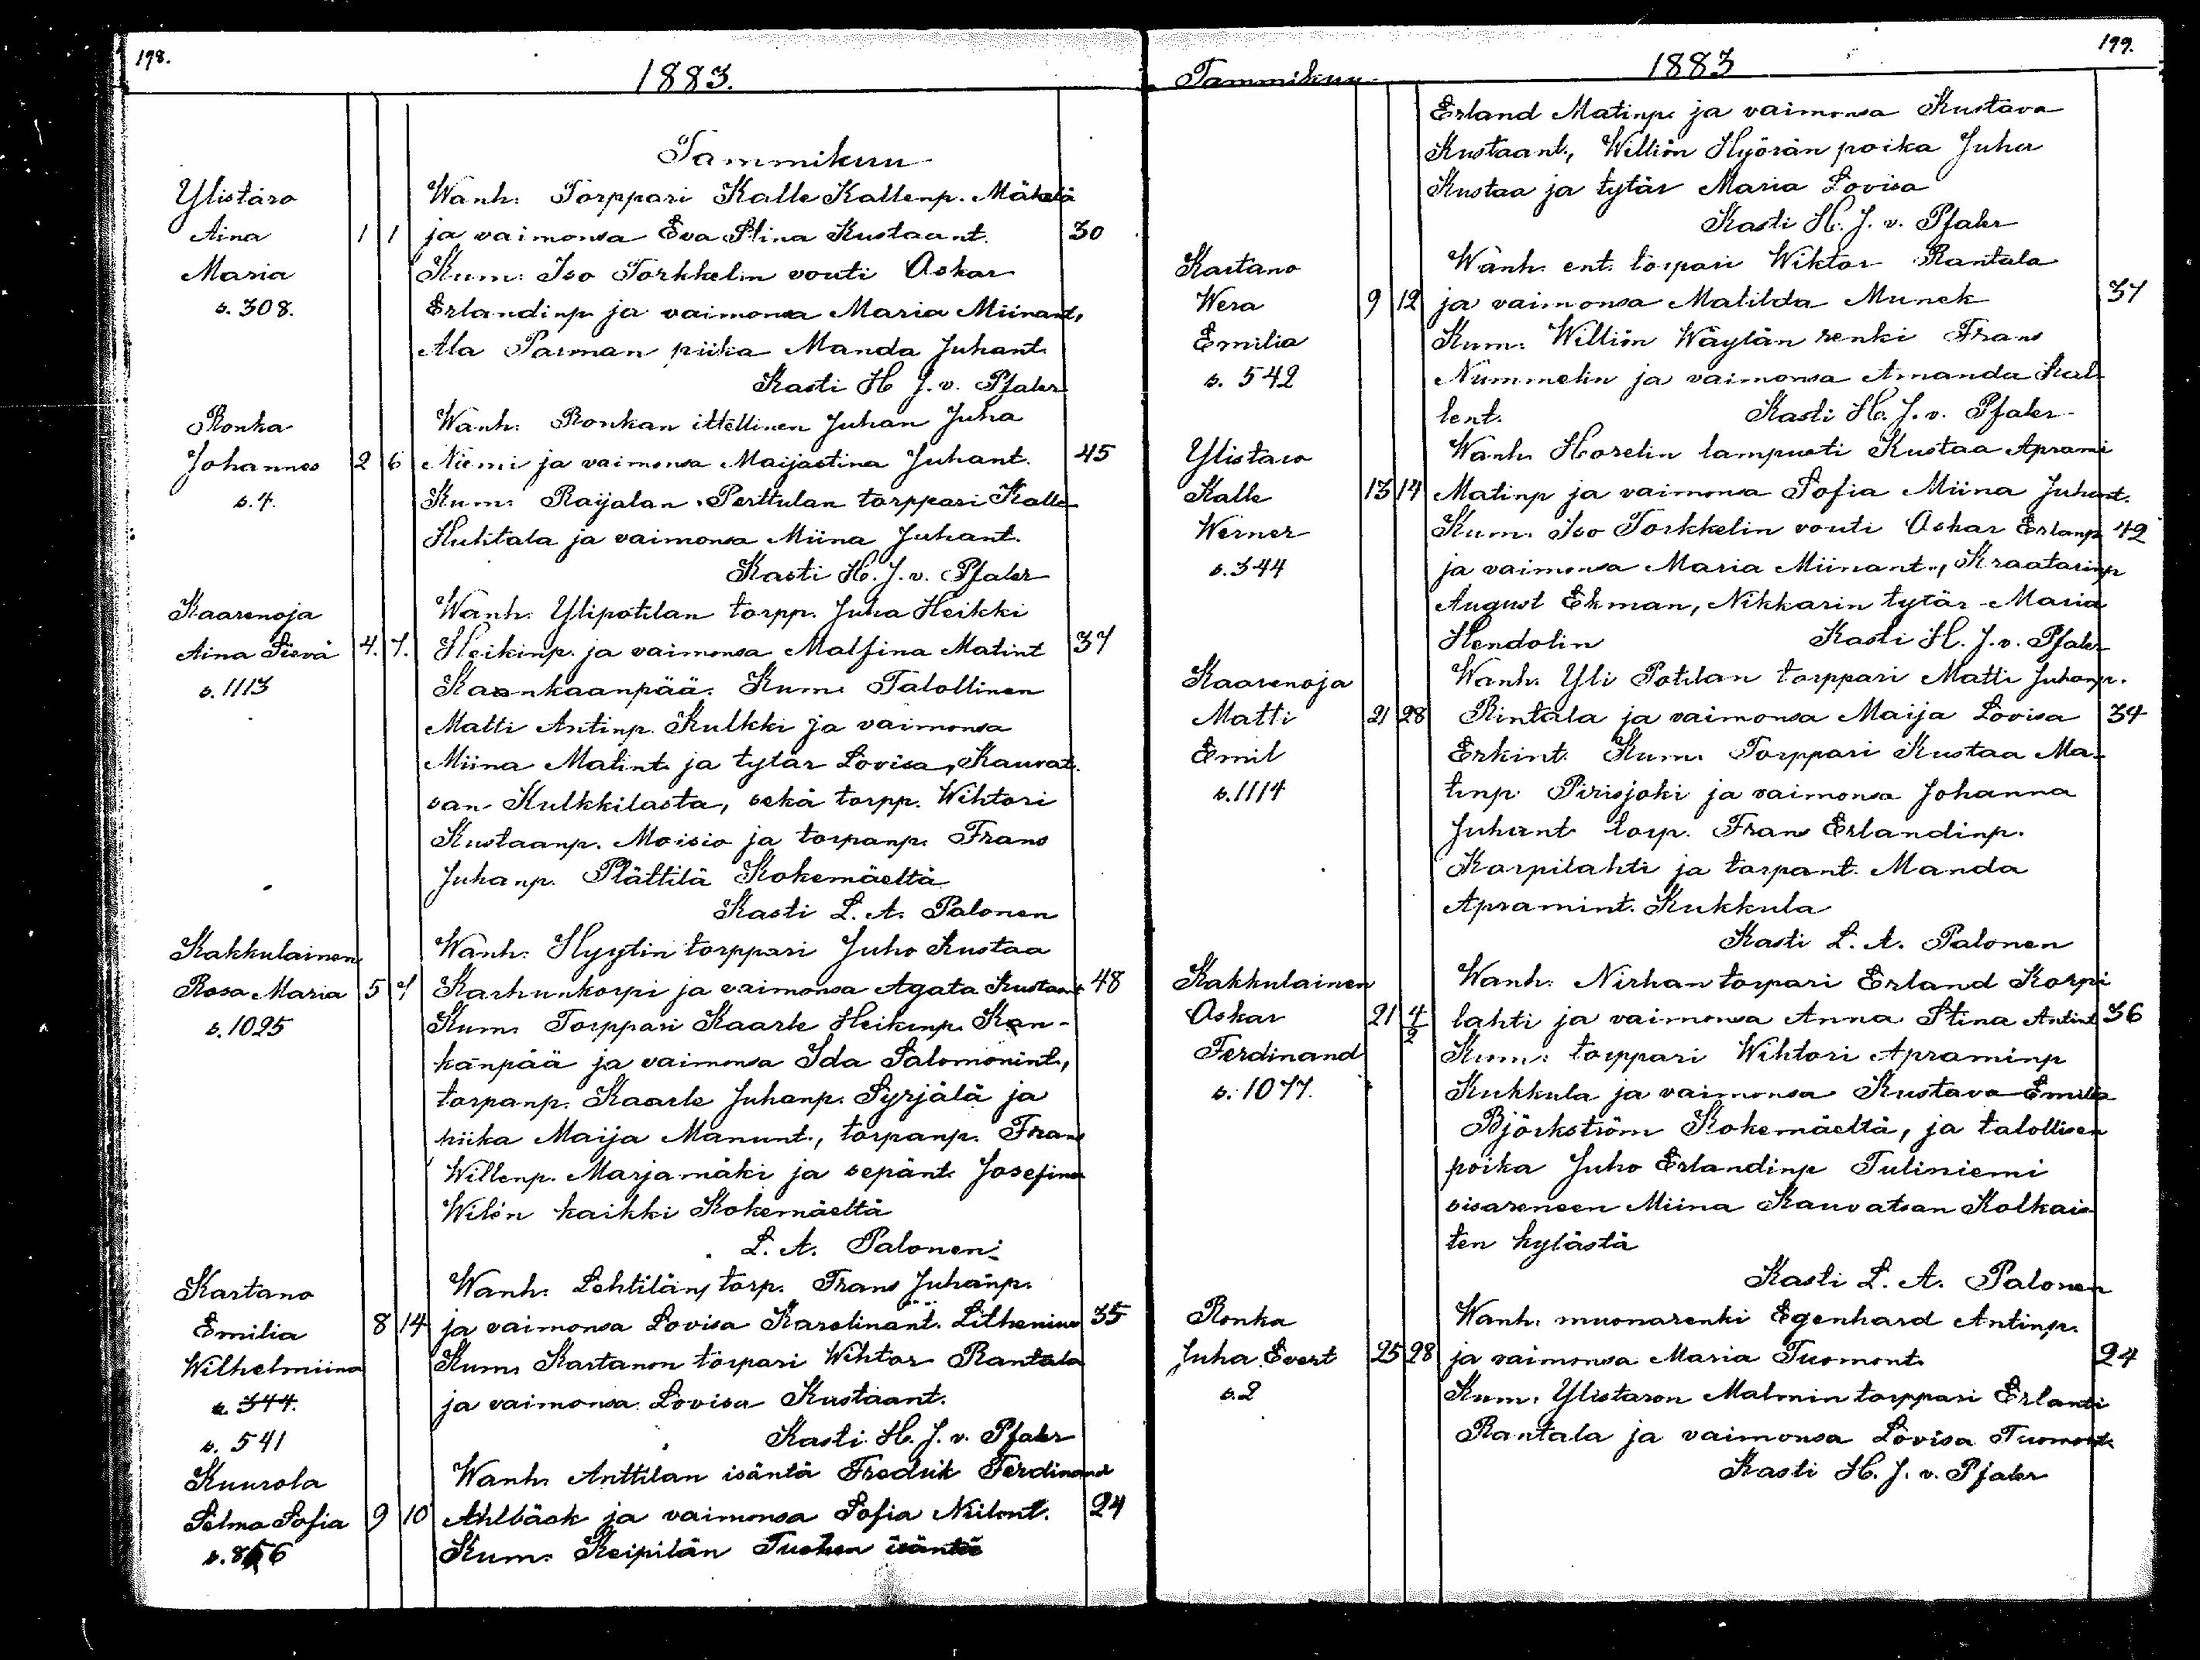 198.
1883.
Tammikuu
Ylistaro Wanh: Torppari Kalle Kallenp. Mäkelä
Aina 1 1 ja vaimonsa Eva Stina Kustaant. 30
Maria Kum: Iso Torkkelin vouti Oskar
s. 308. Erlandinp. ja vaimonsa Maria Miinant,
Ala Parman piika Manda Juhant.
Kasti H J. v. Pfaler
Ronka Wanh: Ronkan ittellinen Juhan Juha
Johannes 2 6 Niemi ja vaimonsa Maijastina Juhant. 45
s. 4. Kum: Raijalan Perttulan torppari Kalle
Huhtala ja vaimonsa Miina Juhant.
Kasti H. J. v. Pfaler
Kaarenoja Wanh. Ylipotilan torpp. Juha Heikki
Aina Sievä 4. 7. Heikinp. ja vaimonsa Malfina Matint 37
s. 1113 Kaankaanpää. Kum: Talollinen
Matti Antinp. Kulkki ja vaimonsa
Miina Matint. ja tytär Lovisa, Kauvat
san Kulkkilasta, sekä torpp. Wihtori
Kustaanp. Moisio ja torpanp. Frans
Juhanp. Plättilä Kokemäeltä
Kasti L. A. Palonen
Kakkulainen Wanh: Hyytin torppari Juho Kustaa
Rosa Maria 5 7 Karhunkorpi ja vaimonsa Agata Kustaant 48
s. 1025 Kum: Torppari Kaarle Heikinp. Kan-
kanpää ja vaimonsa Ida Salomonint.,
torpanp. Kaarle Juhanp. Syrjälä ja
piika Maija Manunt., torpanp. Frans
Willenp. Marjamäki ja sepänt. Josefina
Wilén kaikki Kokemäeltä
L. A. Palonen
Kartano Wanh: Lehtilän torp. Frans Juhanp.
Emilia 8 14 ja vaimonsa Lovisa Karolinant. Lithenius 35
Wilhelmiina Kum: Kartanon torpari Wihtor Rantala
s. 344. ja vaimonsa Lovisa Kustaant.
s. 541 Kasti H. J. v. Pfaler
Kuurola Wanh: Anttilan isäntä Fredrik Ferdinand
Selma Sofia 9 10 Ahlbäck ja vaimonsa Sofia Niilont. 24
s. 856 Kum: Keipilän Tuohen isäntä
199.
Tammikuu 1883
Erland Matinp. ja vaimonsa Kustava
Kustaant., Williön Hyörän poika Juha
Kustaa ja tytär Maria Lovisa
Kasti H. J. v. Pfaler
Kartano Wanh. ent. torpari Wiktor Rantala
Wera 9 12 ja vaimonsa Matilda Munck 37
Emilia Kum: Williön Wäylän renki Frans
s. 542 Nummelin ja vaimonsa Amanda Kal-
lent. Kasti H. J. v. Pfaler
Ylistaro Wanh. Horelin lampuoti Kustaa Aprami
Kalle 13 14 Matinp ja vaimonsa Sofia Miina Juhant.
Werner Kum: Iso Torkkelin vouti Oskar Erlanp 42
s. 344 ja vaimonsa Maria Miinant., Kraatarinp
August Ekman, Nikkarin tytär Maria
Hendolin Kasti H. J. v. Pfaler
Kaarenoja Wanh. Yli Potilan torppari Matti Juhanp.
Matti 21 28 Rintala ja vaimonsa Maija Lovisa 34
Emil Erkint. Kum: Torppari Kustaa Ma-
s. 1114 tinp. Pirisjoki ja vaimonsa Johanna
Juhant torp. Frans Erlandinp.
Korpilahti ja torpant. Manda
Apramint. Kukkula
Kasti L. A. Palonen
Kakkulainen Wanh: Nirhan torpari Erland Korpi
Oskar 21 4/2 lahti ja vaimonsa Anna Stina Antint 36
Ferdinand Kum: torppari Wihtori Apraminp
s. 1077. Kukkula ja vaimonsa Kustava Emilia
Björkström Kokemäeltä, ja talollisen
poika Juho Erlandinp Tuliniemi
sisareneen Miina Kauvatsan Kolkais
ten kylästä
Kasti L. A. Palonen
Ronka Wanh: muonarenki Egenhard Antinp.
Juha Evert 25 28 ja vaimonsa Maria Tuomont. 24
s. 2 Kum: Ylistaron Malmin torppari Erlanti
Rantala ja vaimonsa Lovisa Tuomont.
Kasti H. J. v. Pfaler